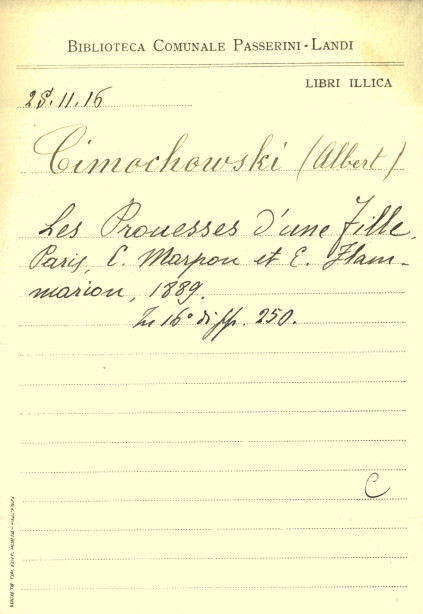 BIBLIOTECA COMUNALE PASSERINI-LANDI
LIBRI ILLICA
25.11.16
Cimochowski (Albert)
Les Prouesses d'une Fille,
Paris, C. Marpon et E. Flam-
marion, 1889.
In 16° di pp. 250.
C